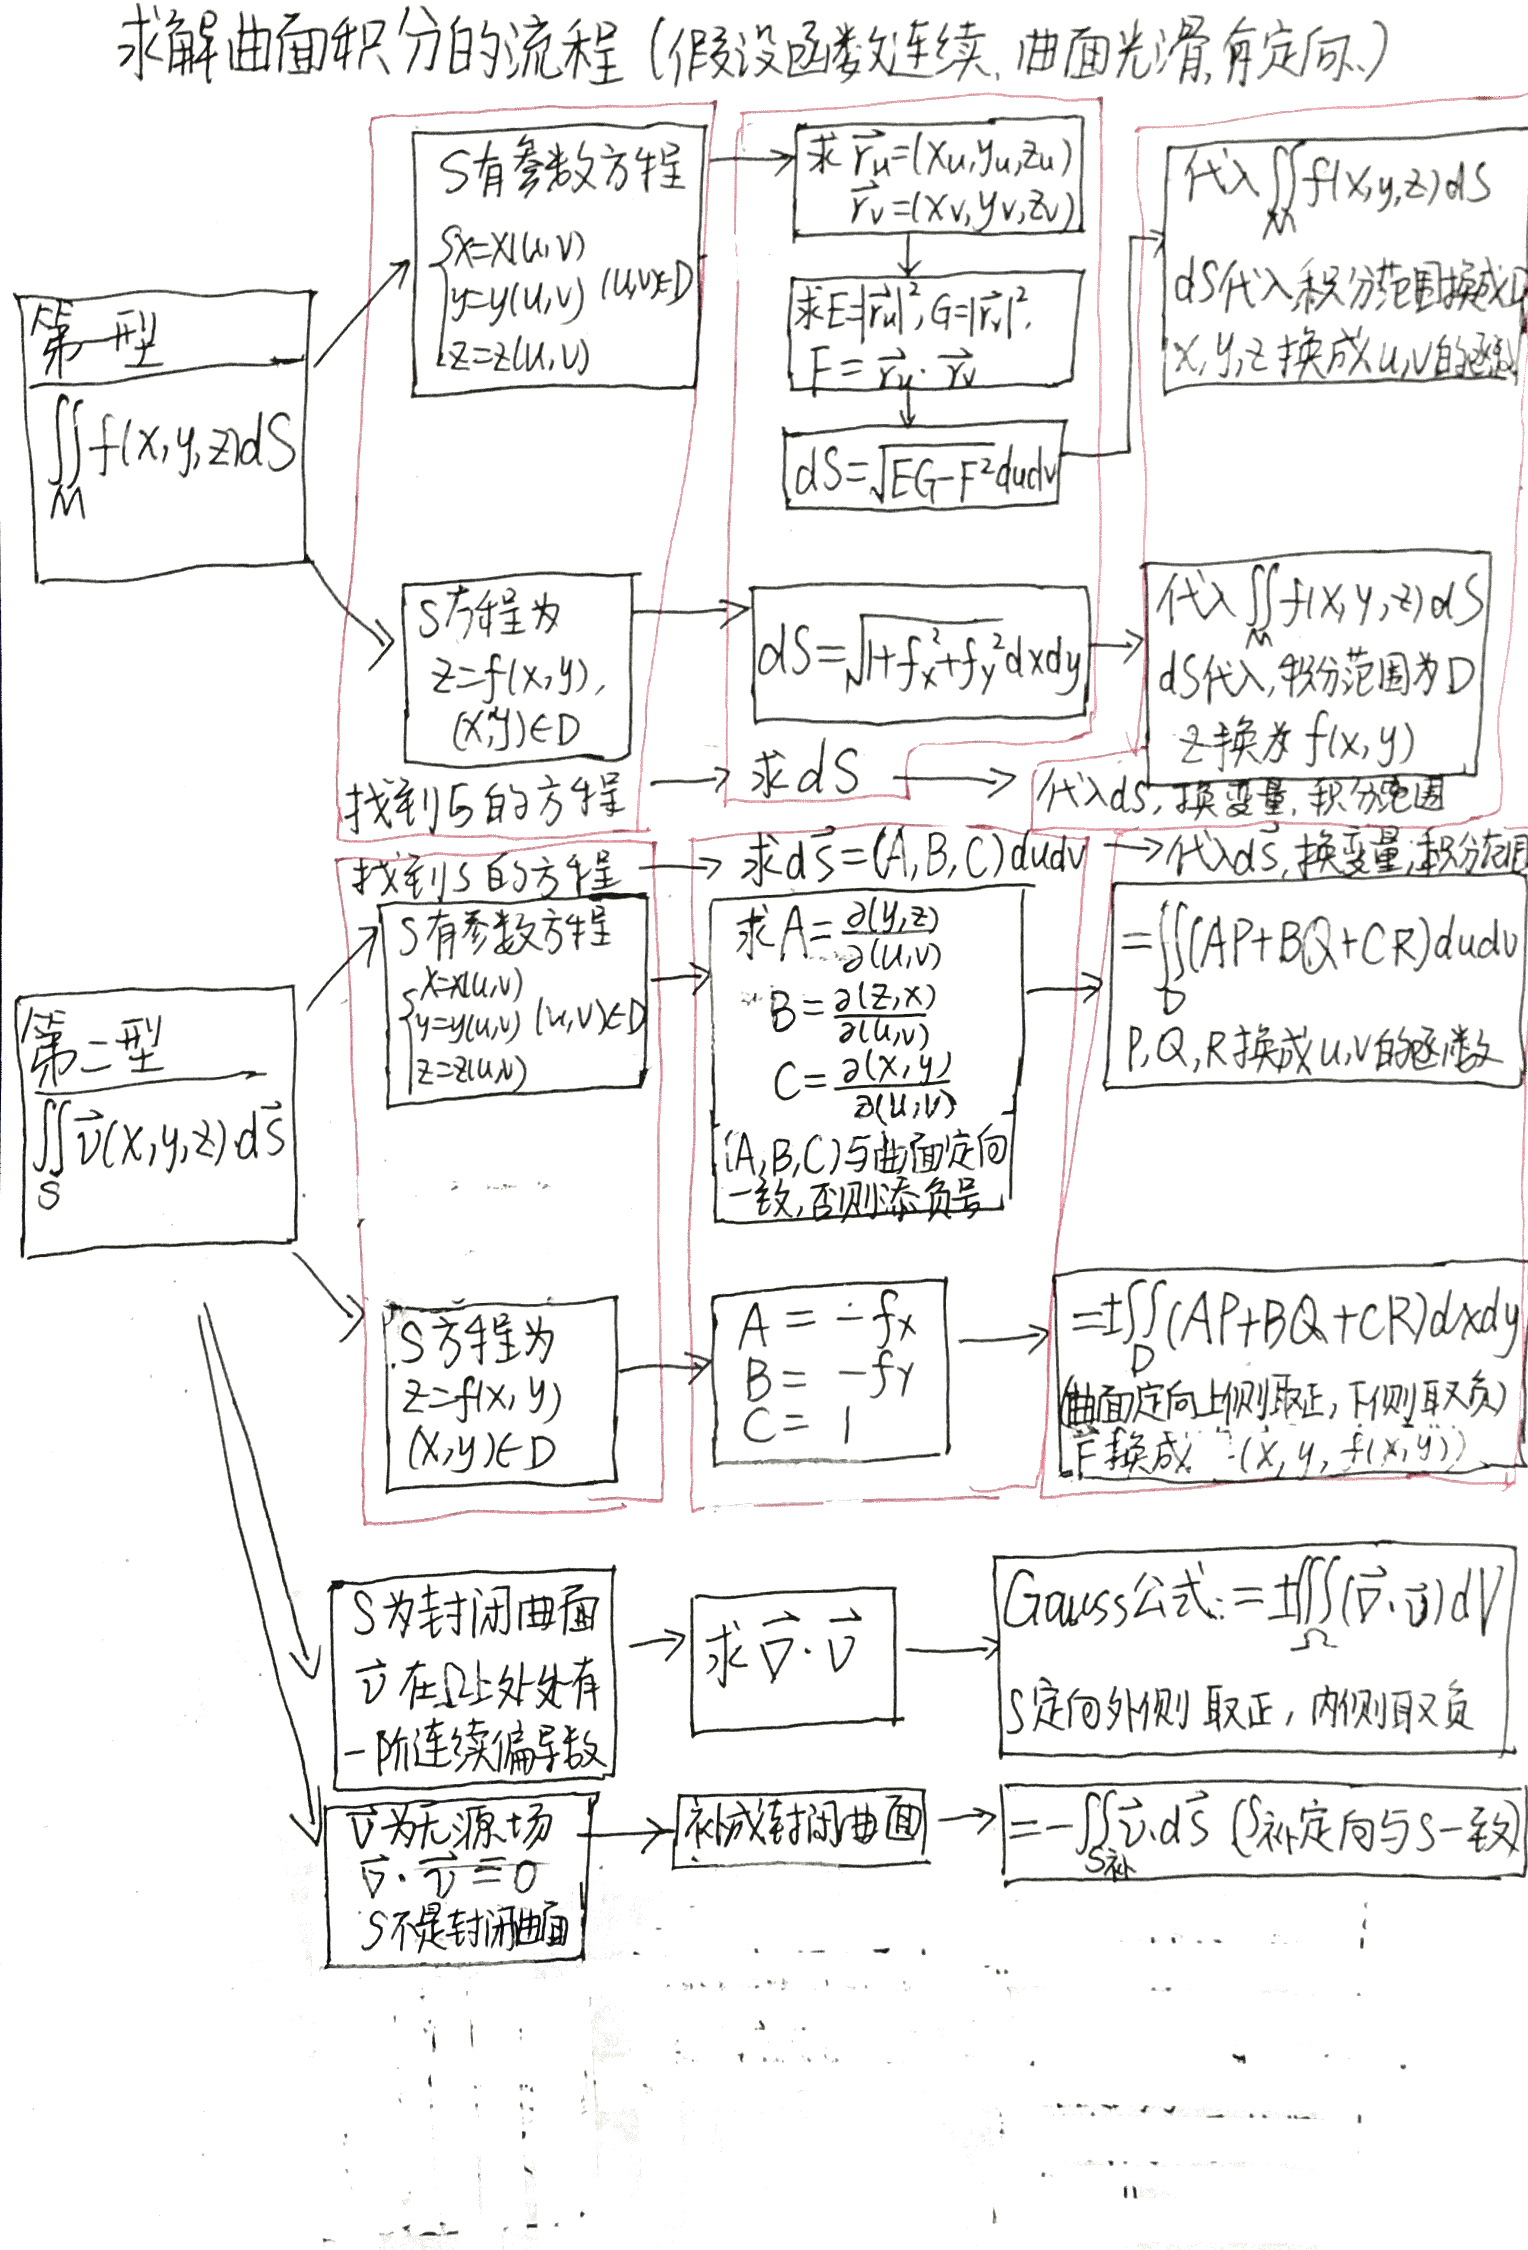 求解曲面积分的流程(假设函数连续,曲面光滑,有定向.)
第一型
∬_M f(x,y,z)dS
S有参数方程
{x=x(u,v)
y=y(u,v) (u,v)∈D
z=z(u,v)
求 r⃗u=(xu,yu,zu)
r⃗v=(xv,yv,zv)
求E=|r⃗u|²,G=|r⃗v|²,
F=r⃗u·r⃗v
dS=√(EG-F²)dudv
代入∬_M f(x,y,z)dS
dS代入积分范围换成D
x,y,z换成u,v的函数
S方程为
z=f(x,y),
(x,y)∈D
dS=√(1+fx²+fy²)dxdy
代入∬_M f(x,y,z)dS
dS代入,积分范围为D
z换为f(x,y)
找到S的方程 → 求dS → 代入dS,换变量,积分范围
找到S的方程 → 求dS⃗=(A,B,C)dudv → 代入dS,换变量,积分范围
第二型
∬_S v⃗(x,y,z)·dS⃗
S有参数方程
{x=x(u,v)
y=y(u,v) (u,v)∈D
z=z(u,v)
求A=∂(y,z)/∂(u,v)
B=∂(z,x)/∂(u,v)
C=∂(x,y)/∂(u,v)
(A,B,C)与曲面定向
一致,否则添负号
=∬_D(AP+BQ+CR)dudv
P,Q,R换成u,v的函数
S方程为
z=f(x,y)
(x,y)∈D
A=-fx
B=-fy
C=1
=±∬_D(AP+BQ+CR)dxdy
(曲面定向上侧取正,下侧取负)
F⃗换成 (x,y,f(x,y))
S为封闭曲面
v⃗在Ω上处处有
一阶连续偏导数
求∇⃗·v⃗
Gauss公式:=±∭_Ω(∇⃗·v⃗)dV
S定向外侧取正,内侧取负
v⃗为无源场
∇⃗·v⃗=0
S不是封闭曲面
补成封闭曲面
=-∬_S补 v⃗·dS⃗ (S补定向与S一致)